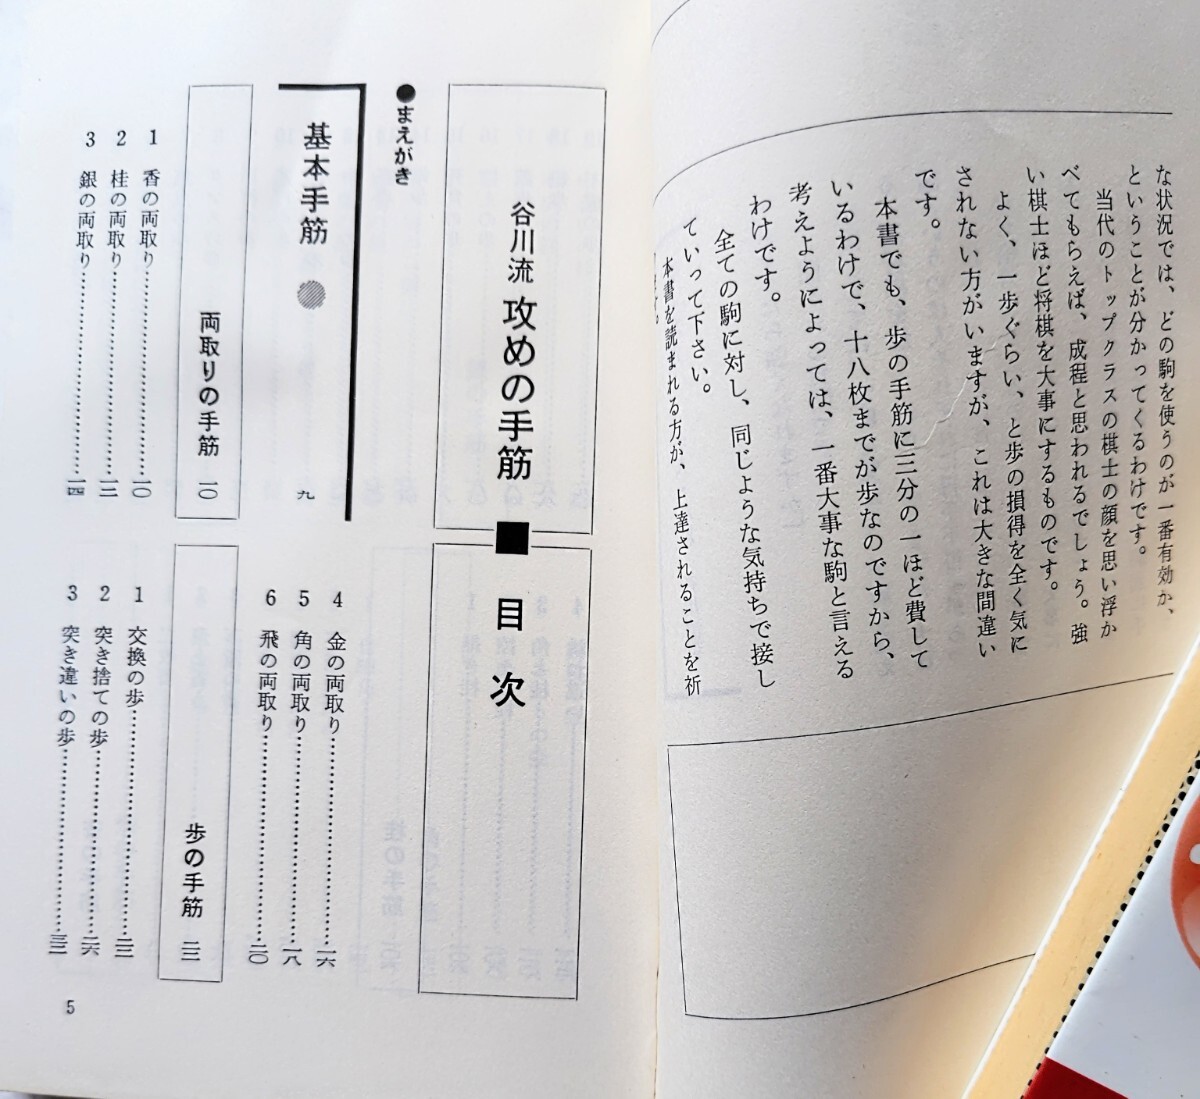 な状況では、どの駒を使うのが一番有効か、
ということが分かってくるわけです。
当代のトップクラスの棋士の顔を思い浮か
べてもらえば、成程と思われるでしょう。強
い棋士ほど将棋を大事にするものです。
よく、一歩ぐらい、と歩の損得を全く気に
されない方がいますが、これは大きな間違い
です。
本書でも、歩の手筋に三分の一ほど費して
いるわけで、十八枚までが歩なのですから、
考えようによっては、一番大事な駒と言える
わけです。
全ての駒に対し、同じような気持ちで接し
ていって下さい。
本書を読まれる方が、上達されることを祈
谷川流 攻めの手筋■目次
●まえがき
基本手筋 九
両取りの手筋 一〇
1 香の両取り 一〇
2 桂の両取り 一二
3 銀の両取り 一四
4 金の両取り 一六
5 角の両取り 一八
6 飛の両取り 二〇
歩の手筋 二三
1 交換の歩
2 突き捨ての歩 二六
3 突き違いの歩
5